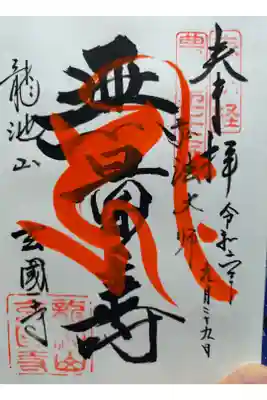 奉拝
令和六年
九月二十九日
弘法大師
無量寿
龍池山
玄國寺